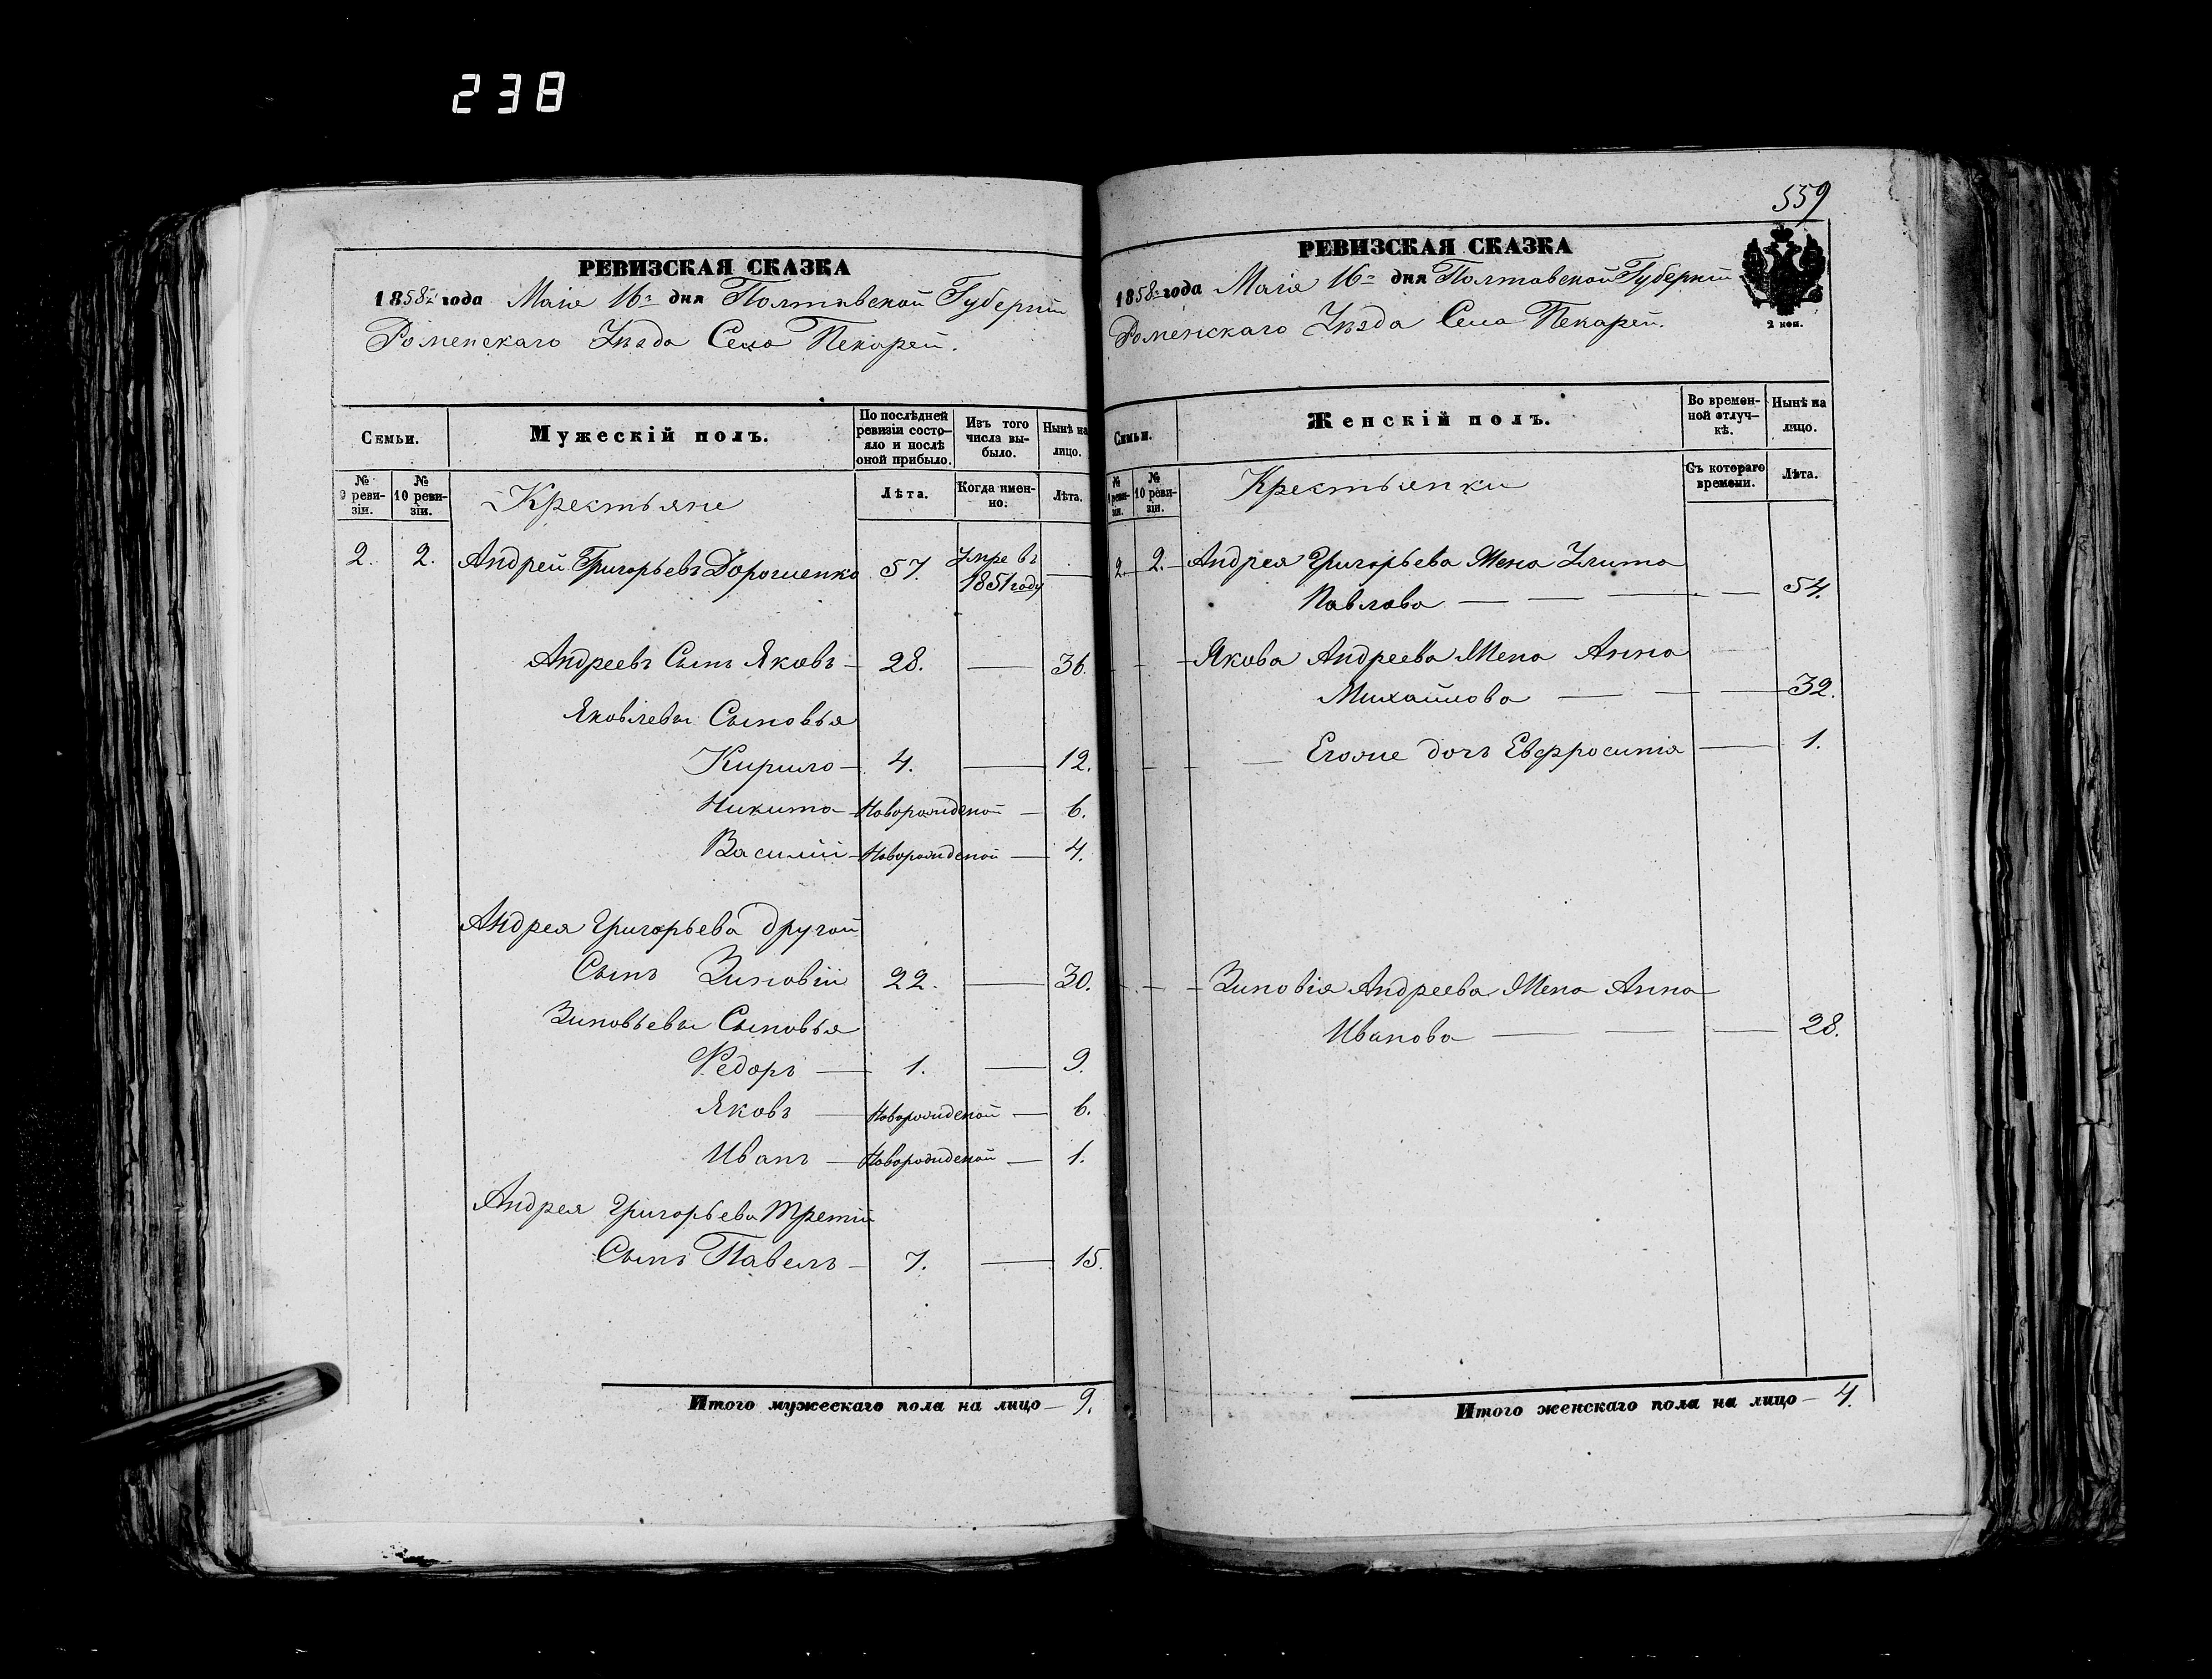 238
РЕВИЗСКАЯ СКАЗКА
1858го года Маія 16го дня Полтавской Губерніи
Роменскаго Уѣзда Села Пекарей.
Семьи.
Мужескій полъ.
По послѣдней ревизіи состояло и послѣ оной прибыло.
Изъ того числа выбыло.
Нынѣ на лицо.
№ 9 ревизіи.
№ 10 ревизіи.
Крестьяне
Лѣта.
Когда именно.
Лѣта.
2. 2. Андрей Григорьевъ Дорошенко 57. Умре въ 1851 году —
Андреевъ Сынъ Яковъ — 28. — 36.
Яковлевы Сыновья
Кирило — 4. — 12.
Никита — Новорожденой — 6.
Василій — Новорожденой — 4.
Андрея Григорьева другой
Сынъ Зиновій 22. — 30.
Зиновьевы Сыновья
Федоръ — 1. — 9.
Яковъ — Новорожденой — 6.
Иванъ — Новорожденой — 1.
Андрея Григорьева Третій
Сынъ Павелъ — 7. — 15.
Итого мужескаго пола на лицо — 9.
559
РЕВИЗСКАЯ СКАЗКА
1858го года Маія 16го дня Полтавской Губерніи
Роменскаго Уѣзда Села Пекарей.
2 коп.
Семьи.
Женскій полъ.
Во временной отлучкѣ.
Нынѣ на лицо.
№ 9 ревизіи.
№ 10 ревизіи.
Крестьянки
Съ котораго времени.
Лѣта.
2. — 2. — Андрея Григорьева Жена Улита
Павлова — — — — 54.
Якова Андреева Жена Анна
Михайлова — — — 32.
Егоже дочь Евфросинія — 1.
Зиновія Андреева Жена Анна
Иванова — — — 28.
Итого женскаго пола на лицо — 4.